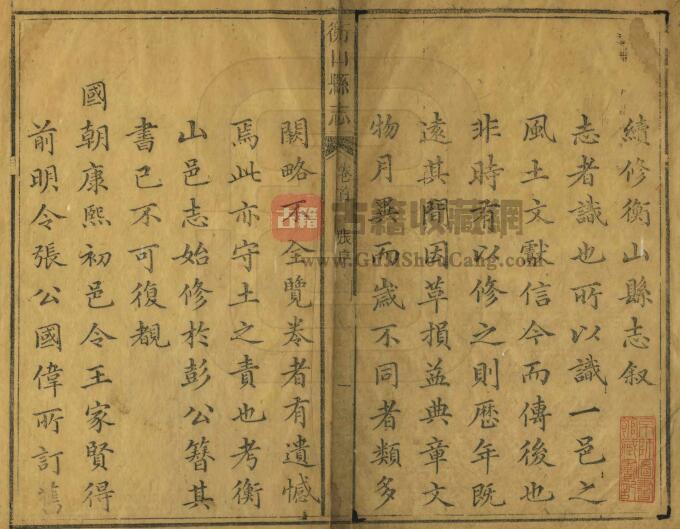 續修衡山縣志叙
志者識也所以識一邑之
風土文獻信今而傳後也
非時有以修之則歷年既
遠其間因革損益典章文
物月異而歲不同者類多
衡山縣志
卷首
張序
一
闕略不全覽卷者有遺憾
焉此亦守土之責也考衡
山邑志始修於彭公簪其
書已不可復覩
國朝康熙初邑令王家賢得
前明令張公國偉所訂舊
古籍
古籍收藏網
www.GuJiShouCang.com